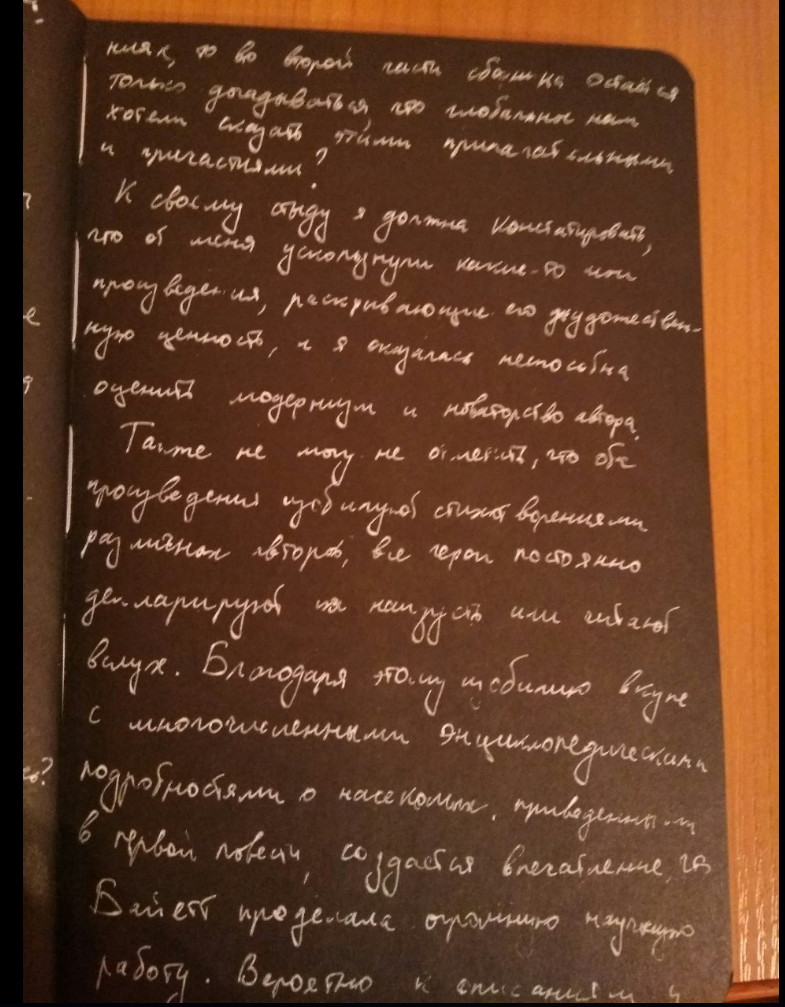 ниях, то во второй части сборника остаётся
только догадываться, что глобально нам
хотели сказать этими прилагательными
и причастиями?
К своему стыду я должна констатировать,
что от меня ускользнули какие-то
произведения, раскрывающие его художествен-
ную ценность, и я оказалась неспособна
оценить модернизм и новаторство автора.
Также не могу не отметить, что оба
произведения изобилуют стихотворениями
различных авторов, все герои постоянно
декларируют их наизусть или читают
вслух. Благодаря этому изобилию вкупе
с многочисленными энциклопедическими
подробностями о насекомых, приведенными
в первой повести, создается впечатление, что
Байетт проделала огромную научную
работу. Вероятно к описаниям и